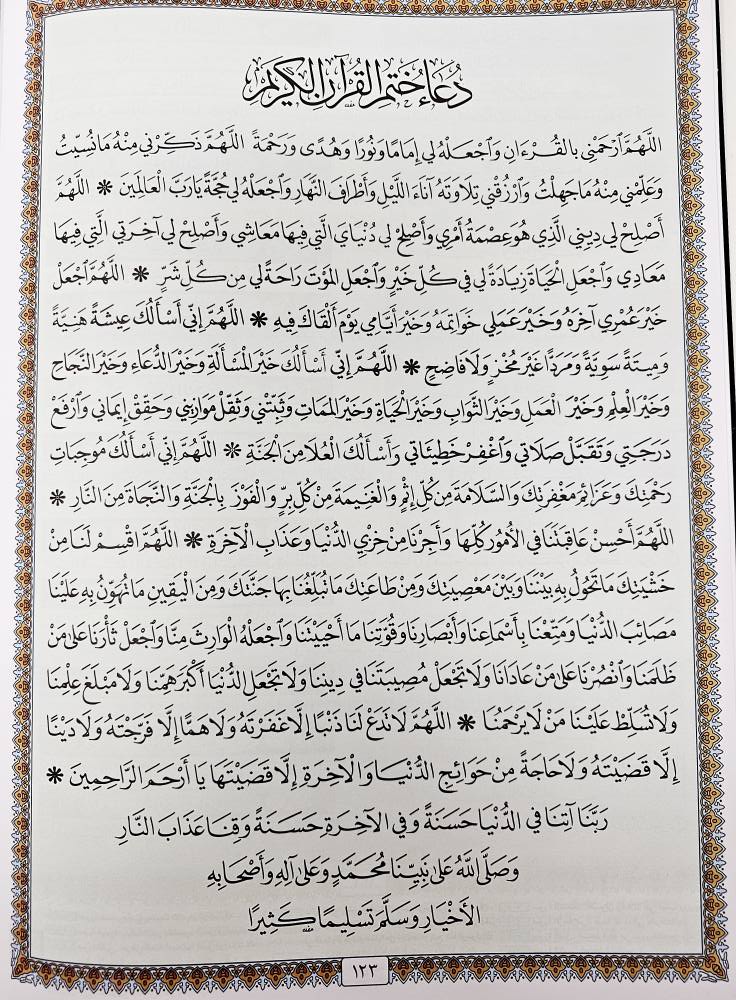 دُعَاءُ خَتْمِ القُرْآنِ الكَرِيمِ
اللَّهُمَّ ٱرْحَمْنِي بالقُرْءَانِ وَٱجْعَلْهُ لِي إِمَامًا وَنُورًا وَهُدًى وَرَحْمَةً اللَّهُمَّ ذَكِّرْنِي مِنْهُ مَا نُسِّيتُ
وَعَلِّمْنِي مِنْهُ مَا جَهِلْتُ وَٱرْزُقْنِي تِلَاوَتَهُ آنَاءَ اللَّيْلِ وَأَطْرَافَ النَّهَارِ وَٱجْعَلْهُ لِي حُجَّةً يَا رَبَّ الْعَالَمِينَ * اللَّهُمَّ
أَصْلِحْ لِي دِينِي الَّذِي هُوَ عِصْمَةُ أَمْرِي وَأَصْلِحْ لِي دُنْيَايَ الَّتِي فِيهَا مَعَاشِي وَأَصْلِحْ لِي آخِرَتِي الَّتِي فِيهَا
مَعَادِي وَٱجْعَلِ الْحَيَاةَ زِيَادَةً لِي فِي كُلِّ خَيْرٍ وَٱجْعَلِ الْمَوْتَ رَاحَةً لِي مِن كُلِّ شَرٍّ * اللَّهُمَّ ٱجْعَلْ
خَيْرَ عُمْرِي آخِرَهُ وَخَيْرَ عَمَلِي خَوَاتِمَهُ وَخَيْرَ أَيَّامِي يَوْمَ أَلْقَاكَ فِيهِ * اللَّهُمَّ إِنِّي أَسْأَلُكَ عِيشَةً هَنِيَّةً
وَمِيتَةً سَوِيَّةً وَمَرَدًّا غَيْرَ مُخْزٍ وَلَا فَاضِحٍ * اللَّهُمَّ إِنِّي أَسْأَلُكَ خَيْرَ الْمَسْأَلَةِ وَخَيْرَ الدُّعَاءِ وَخَيْرَ النَّجَاحِ
وَخَيْرَ الْعِلْمِ وَخَيْرَ الْعَمَلِ وَخَيْرَ الثَّوَابِ وَخَيْرَ الْحَيَاةِ وَخَيْرَ الْمَمَاتِ وَثَبِّتْنِي وَثَقِّلْ مَوَازِينِي وَحَقِّقْ إِيمَانِي وَٱرْفَعْ
دَرَجَتِي وَتَقَبَّلْ صَلَاتِي وَٱغْفِرْ خَطِيئَاتِي وَأَسْأَلُكَ الْعُلَا مِنَ الْجَنَّةِ * اللَّهُمَّ إِنِّي أَسْأَلُكَ مُوجِبَاتِ
رَحْمَتِكَ وَعَزَائِمَ مَغْفِرَتِكَ وَالسَّلَامَةَ مِن كُلِّ إِثْمٍ وَالْغَنِيمَةَ مِن كُلِّ بِرٍّ وَالْفَوْزَ بِالْجَنَّةِ وَالنَّجَاةَ مِنَ النَّارِ *
اللَّهُمَّ أَحْسِنْ عَاقِبَتَنَا فِي الْأُمُورِ كُلِّهَا وَأَجِرْنَا مِنْ خِزْيِ الدُّنْيَا وَعَذَابِ الْآخِرَةِ * اللَّهُمَّ اقْسِمْ لَنَا مِنْ
خَشْيَتِكَ مَا تَحُولُ بِهِ بَيْنَنَا وَبَيْنَ مَعْصِيَتِكَ وَمِنْ طَاعَتِكَ مَا تُبَلِّغُنَا بِهَا جَنَّتَكَ وَمِنَ الْيَقِينِ مَا تُهَوِّنُ بِهِ عَلَيْنَا
مَصَائِبَ الدُّنْيَا وَمَتِّعْنَا بِأَسْمَاعِنَا وَأَبْصَارِنَا وَقُوَّتِنَا مَا أَحْيَيْتَنَا وَٱجْعَلْهُ الْوَارِثَ مِنَّا وَٱجْعَلْ ثَأْرَنَا عَلَى مَنْ
ظَلَمَنَا وَٱنْصُرْنَا عَلَى مَنْ عَادَانَا وَلَا تَجْعَلْ مُصِيبَتَنَا فِي دِينِنَا وَلَا تَجْعَلِ الدُّنْيَا أَكْبَرَ هَمِّنَا وَلَا مَبْلَغَ عِلْمِنَا
وَلَا تُسَلِّطْ عَلَيْنَا مَنْ لَا يَرْحَمُنَا * اللَّهُمَّ لَا تَدَعْ لَنَا ذَنْبًا إِلَّا غَفَرْتَهُ وَلَا هَمًّا إِلَّا فَرَّجْتَهُ وَلَا دَيْنًا
إِلَّا قَضَيْتَهُ وَلَا حَاجَةً مِنْ حَوَائِجِ الدُّنْيَا وَالْآخِرَةِ إِلَّا قَضَيْتَهَا يَا أَرْحَمَ الرَّاحِمِينَ *
رَبَّنَا آتِنَا فِي الدُّنْيَا حَسَنَةً وَفِي الْآخِرَةِ حَسَنَةً وَقِنَا عَذَابَ النَّارِ
وَصَلَّى اللَّهُ عَلَى نَبِيِّنَا مُحَمَّدٍ وَعَلَى آلِهِ وَأَصْحَابِهِ
الأَخْيَارِ وَسَلَّمَ تَسْلِيمًا كَثِيرًا
١٢٣